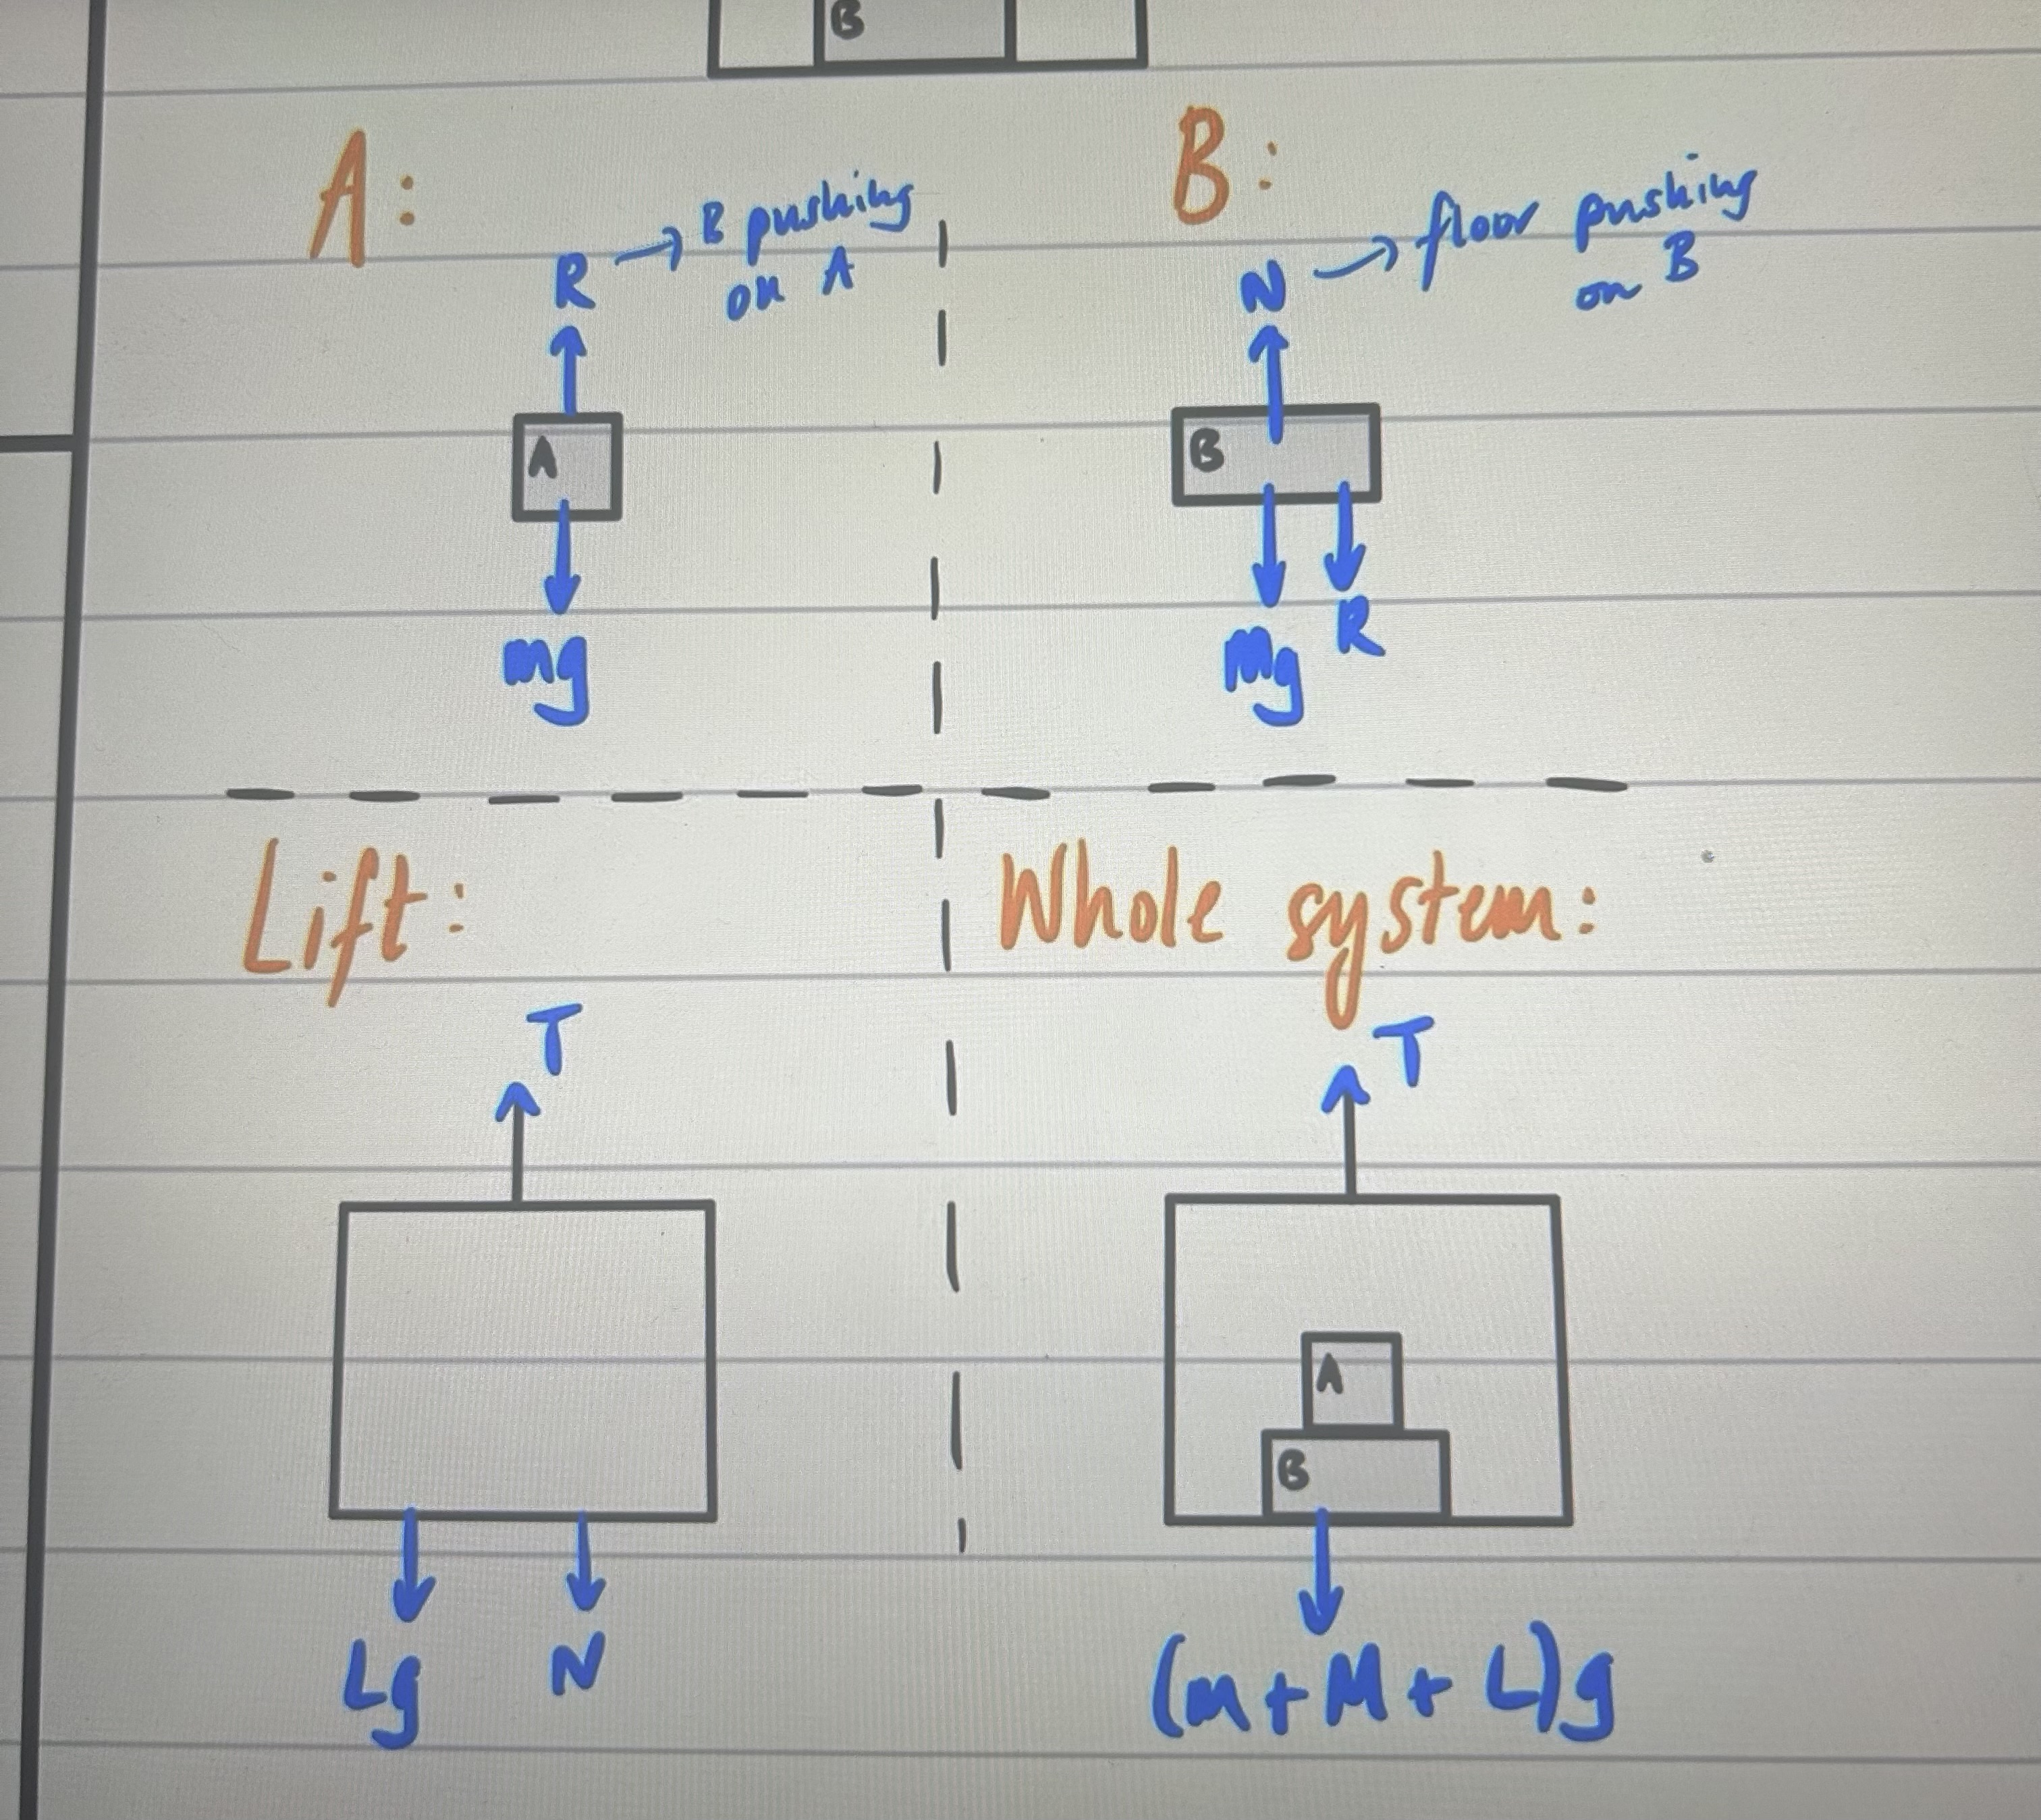 B
A:
R → B pushing
on A
A
mg
B:
N → floor pushing
on B
B
Mg R
Lift:
T
Lg N
Whole system:
T
A
B
(m+M+L)g